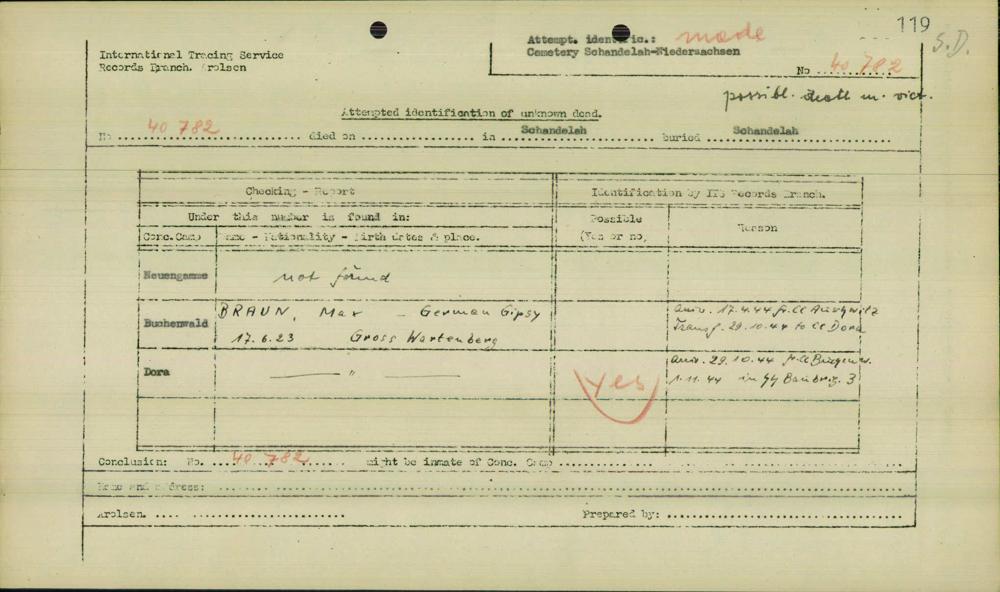 119
S.D.
International Tracing Service
Records Branch. Arolsen
Attempt. identific.: made
Cemetery Schandelah-Niedersachsen
No ...40 782...
possibl. death m. vict.
Attempted identification of unknown dead.
No ...40 782... died on ............ in ...Schandelah... buried ...Schandelah...
Checking - Report
Identification by ITS Records Branch.
Under this number is found in:
Possible
(Yes or no)
Reason
Conc.Camp Name - Nationality - Birth dates & place.
Neuengamme not found
Buchenwald BRAUN, Max - German Gipsy
17.6.23 Gross Wartenberg
arriv. 17.4.44 fr. CC Auschwitz
Transf. 29.10.44 to CC Dora
Dora ——— " ———
yes
arriv. 29.10.44 fr. CC
1.11.44 in SS Baubrig. 3
Conclusion: No. ...40 782... might be inmate of Conc. Camp ............
Name and address: ............
Arolsen. .... ............
Prepared by: ............